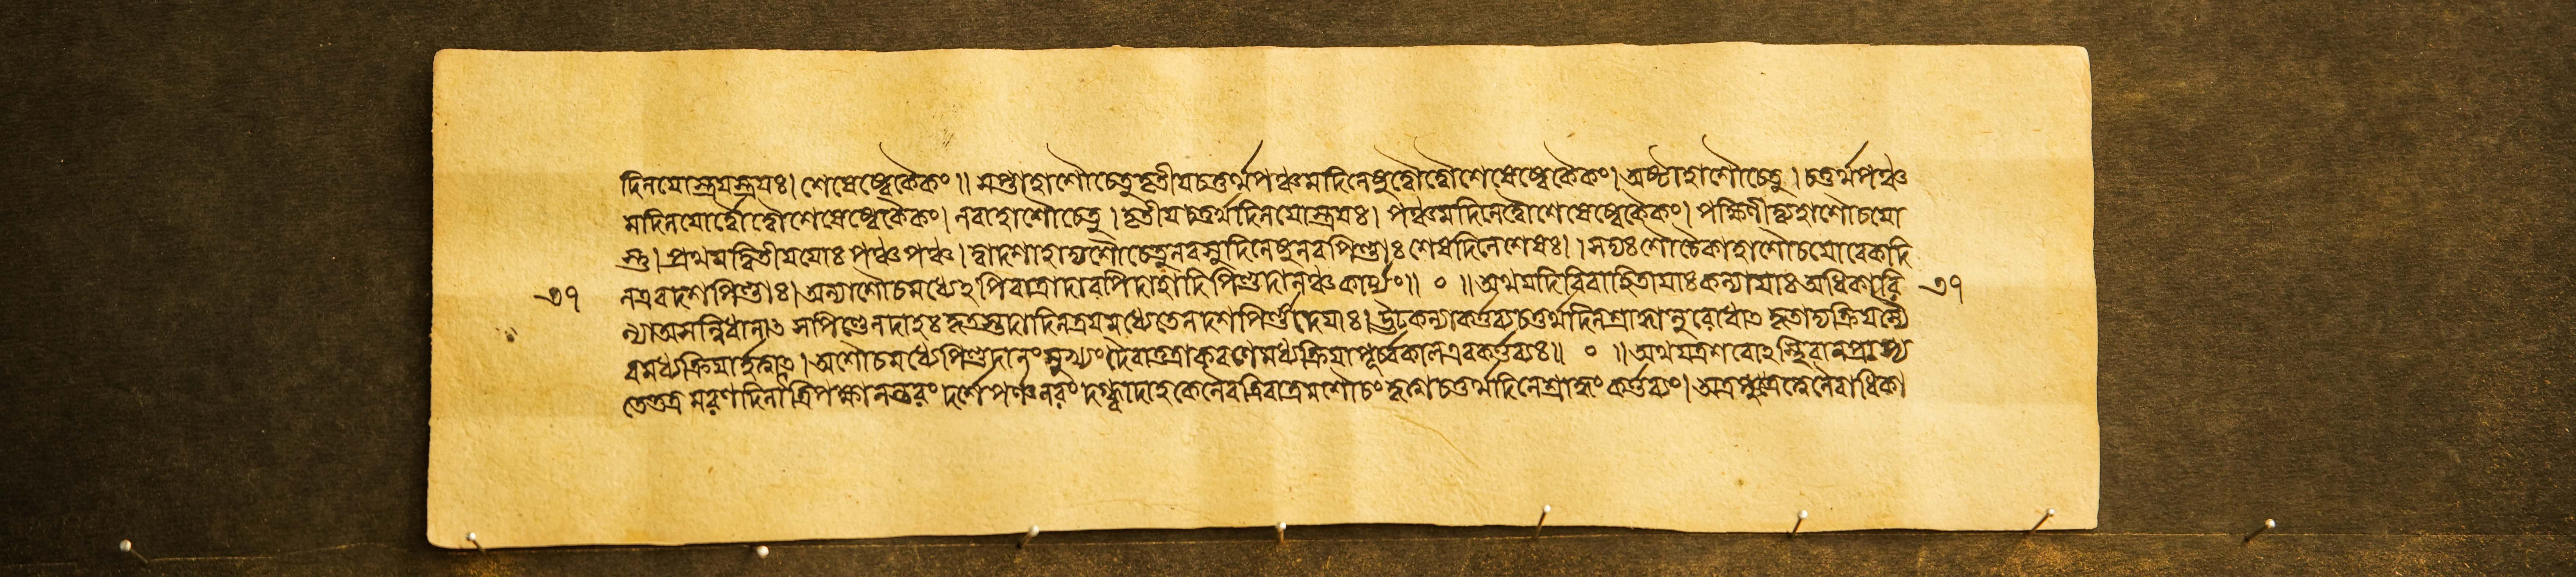 দিনযোস্ত্রযস্ত্রযঃ। শেষেষ্বেকৈকং॥ সপ্তাহাশৌচেতু তৃতীযচতুর্থপঞ্চমদিনেষু দ্বৌদ্বৌশেষেষ্বেকৈকং। অষ্টাহাশৌচেতু। চতুর্থপঞ্চ
মদিনযোর্দ্বৌদ্বৌশেষেষ্বেকৈকং। নবাহাশৌচেতু। তৃতীযচতুর্থদিনযোস্ত্রযঃ। পঞ্চমদিনেদ্বৌশেষেষ্বেকৈকং। পক্ষিণীদ্ব্যহাশৌচযো
স্তু। প্রথমদ্বিতীযযোঃ পঞ্চপঞ্চ। দ্বাদশাহাদ্যশৌচেতুনবসুদিনেষুনবপিণ্ডাঃ শেষদিনেশেষঃ।। সদ্যঃশৌচৈকাহাশৌচযোরেকদি
৩৭ নএবদশপিণ্ডাঃ। অন্যাশৌচমধ্যেঽপি দাহাদিপিণ্ডদানঞ্চকার্য্যং॥ ০ ॥ অথযদিবিবাহিতাযাঃকন্যাযাঃঅধিকারি ৩৭
অসন্নিধানাৎ সপিণ্ডেনদাহঃকৃতস্তদাদিনত্রযমধ্যেতেনদশপিণ্ডাদেযাঃ। কর্ত্তব্যচতুর্থদিনশ্রাদ্ধানুরোধাৎ
অশৌচমধ্যেপিণ্ডদানং মুখ্যং পূর্ব্বকালএবকর্ত্তব্যঃ॥ ০ ॥ অথযত্রশবোঽস্থি
তেতত্র মরণদিনাৎ ত্রিপক্ষানন্তরং দর্শে পর্ণনরং দগ্ধ্বা ত্রিরাত্রমশৌচং কৃত্বাচতুর্থদিনেশ্রাদ্ধং কর্ত্তব্যং।